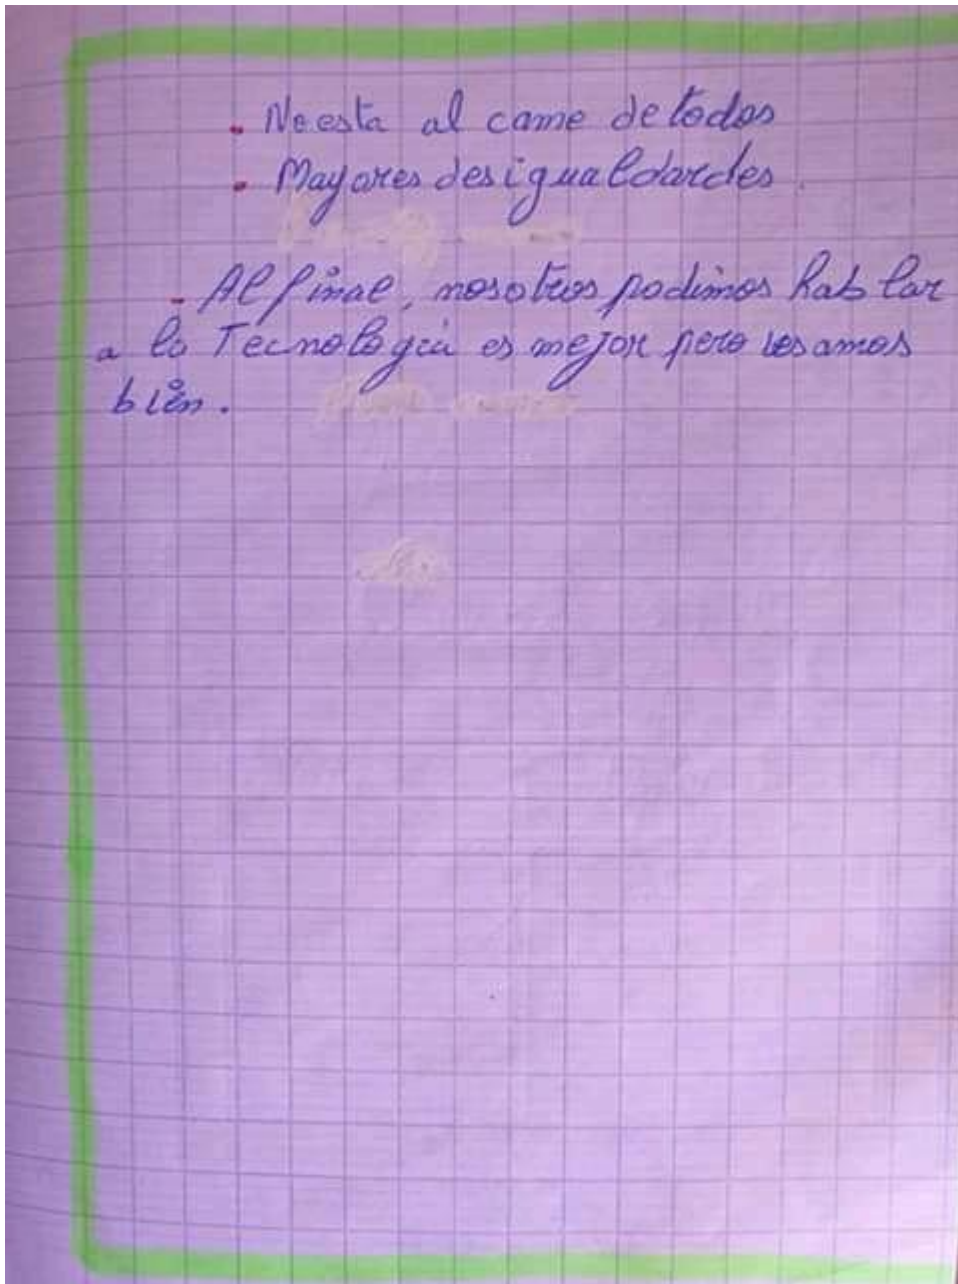 . No esta al came de todos
. Mayares desigualdardes.
- Al final, nosotros podimos hablar
a la Tecnologia es mejor pero usamos
bien.